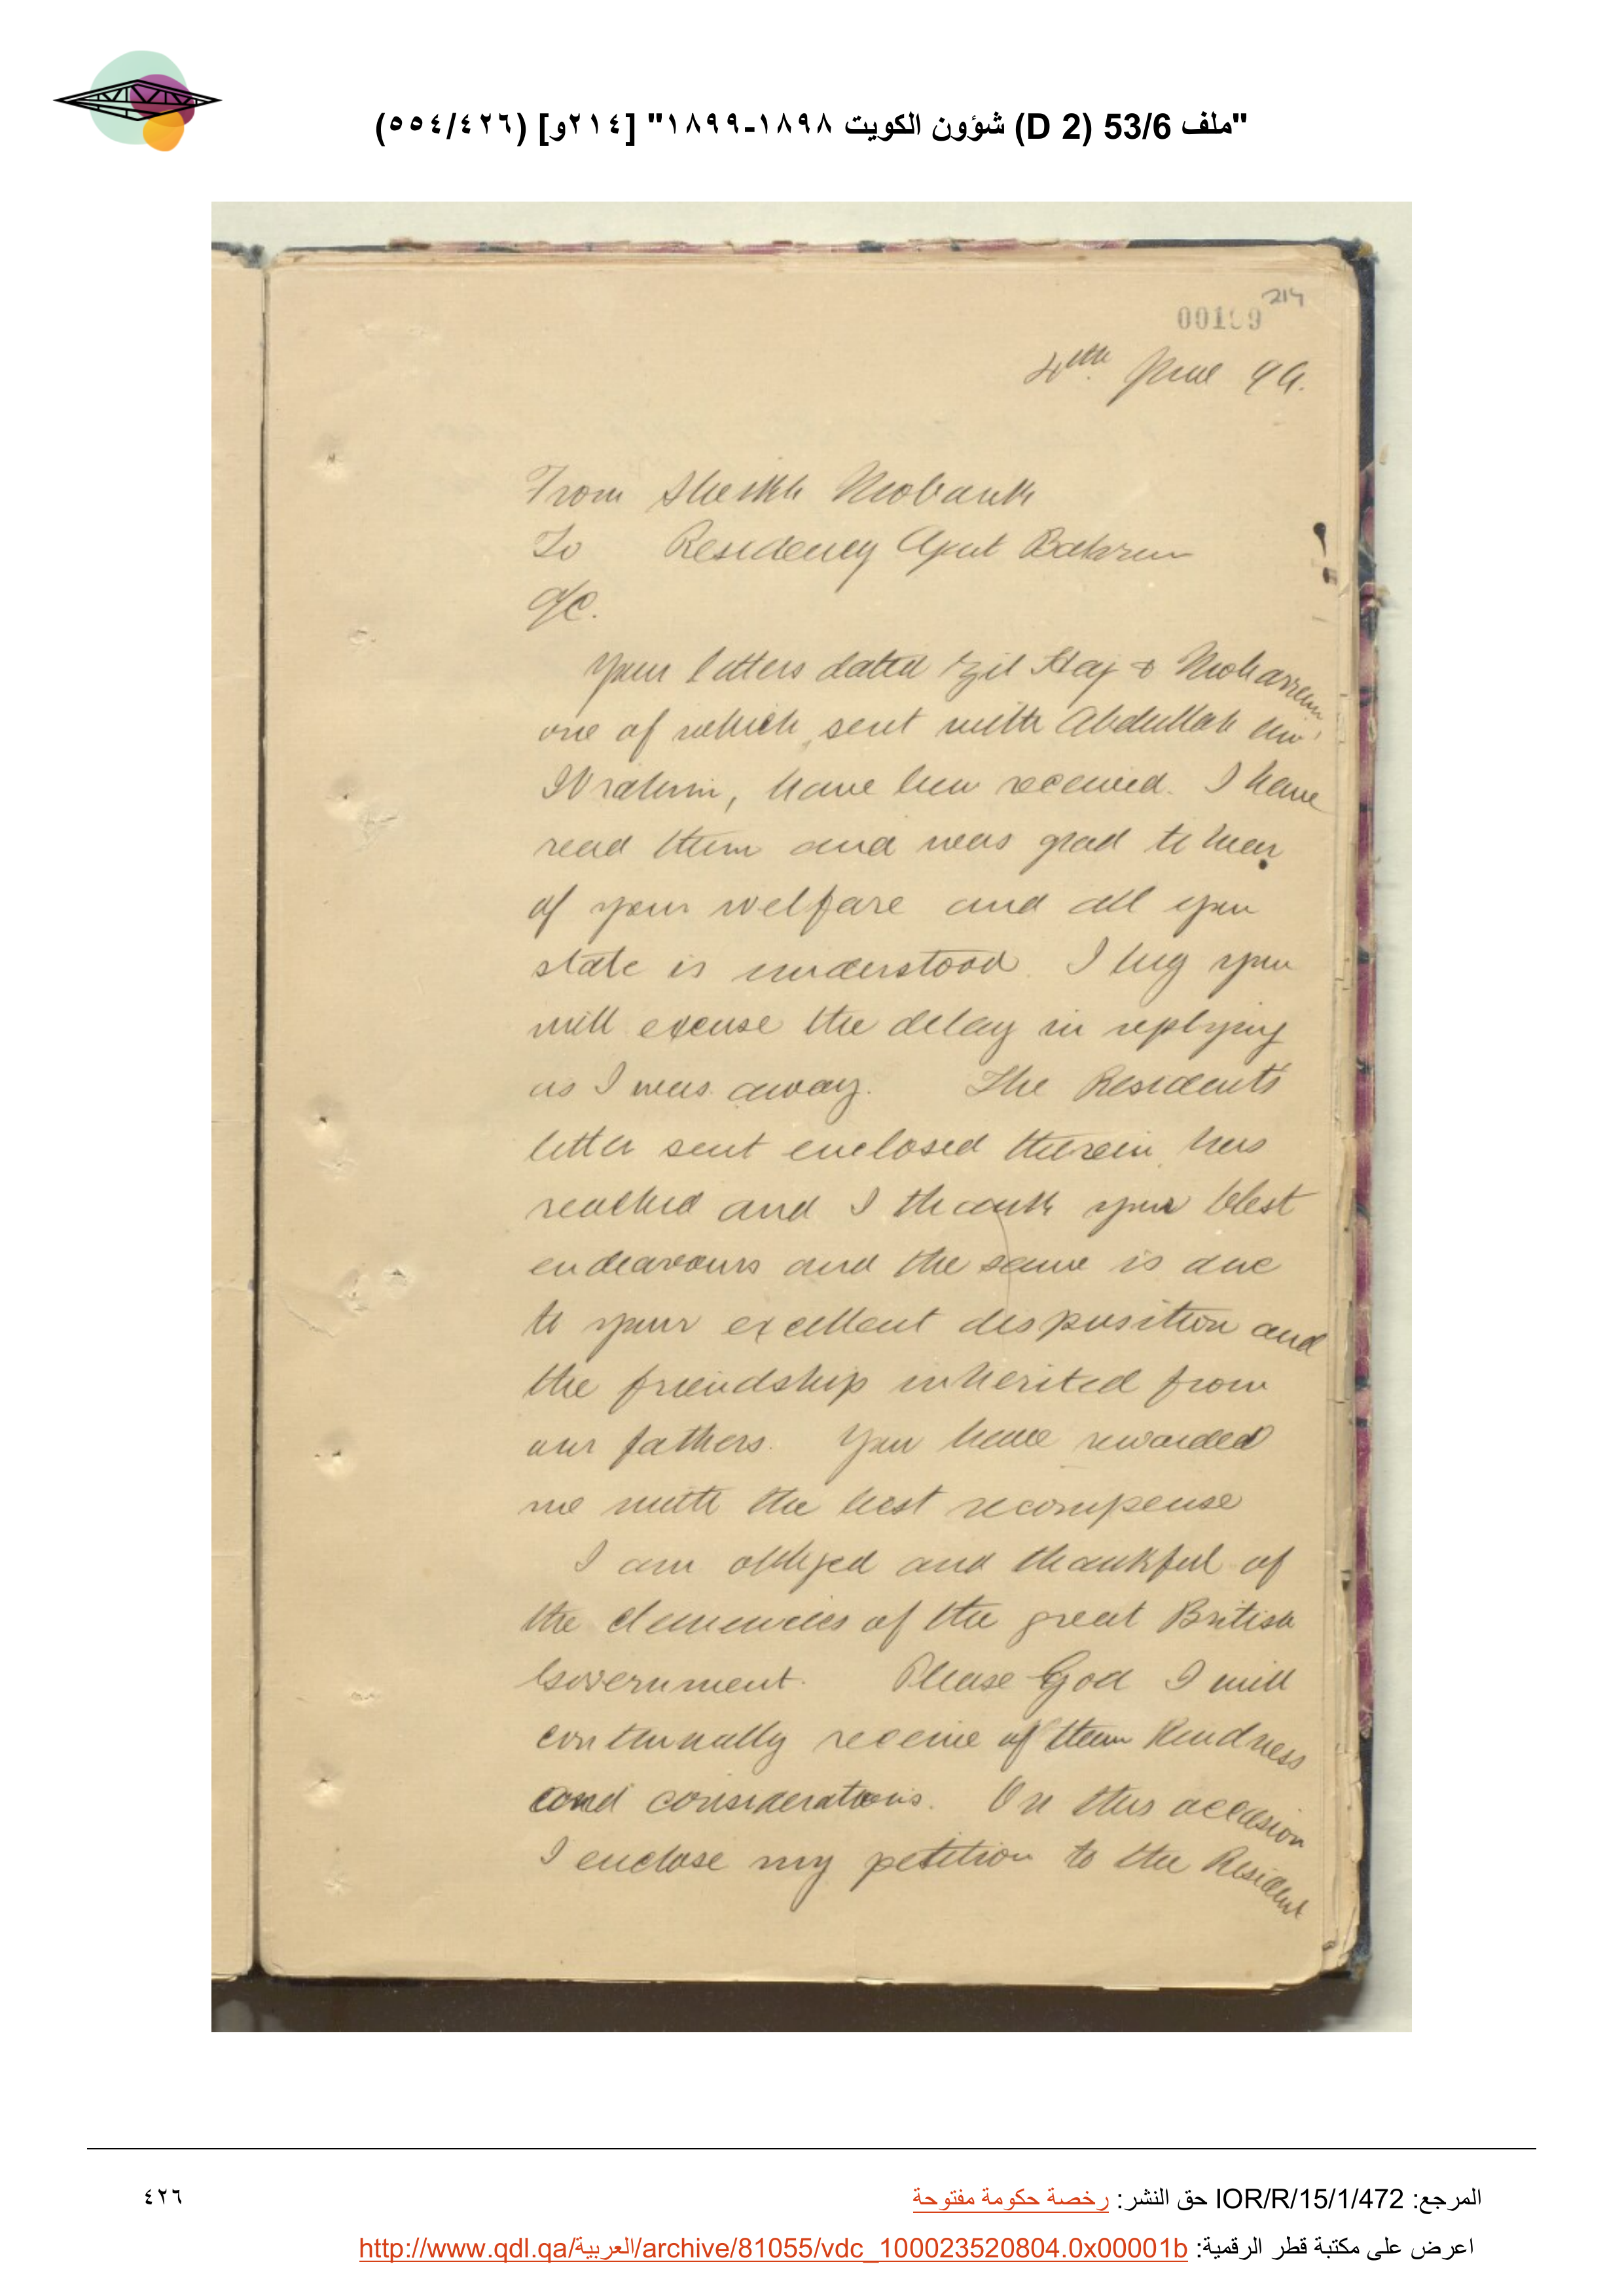 "ملف 53/6 (D 2) شؤون الكويت ١٨٩٨-١٨٩٩" [٢١٤و] (٥٥٤/٤٢٦)
214
00199
4th June 99.
From Sheikh Mobarak
To Residency Agent Bahrein
A/C.
Your letters dated Zil Haj & Moharrem
one of which, sent with Abdullah bin
Ibrahim, have been received. I have
read them and was glad to hear
of your welfare and all you
state is understood. I beg you
will excuse the delay in replying
as I was away. The Residents
letter sent enclosed therein, has
reached and I thank your best
endeavours and the same is due
to your excellent disposition and
the friendship inherited from
our fathers. You have rewarded
me with the best recompense
I am obliged and thankful of
the clemencies of the great British
Government. Please God I will
continually receive of them kindness
and considerations. On this occasion
I enclose my petition to the Resident
المرجع: IOR/R/15/1/472 حق النشر: رخصة حكومة مفتوحة
٤٢٦
اعرض على مكتبة قطر الرقمية: http://www.qdl.qa/العربية/archive/81055/vdc_100023520804.0x00001b